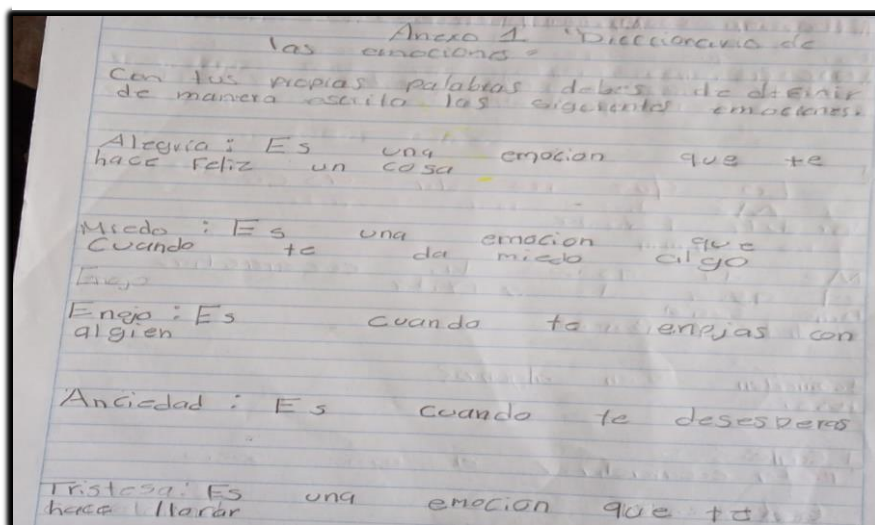 Anexo 1 "Diccionario de
las emociones"
Con tus propias palabras debes de definir
de manera escrita las siguientes emociones.
Alegria : Es una emocion que te
hace Feliz un cosa
Miedo : Es una emocion que
Cuando te da miedo algo
Enojo : Es cuando te enojas con
algien
Anciedad : Es cuando te desesperas
Tristesa : Es una emocion que te
hace llorar